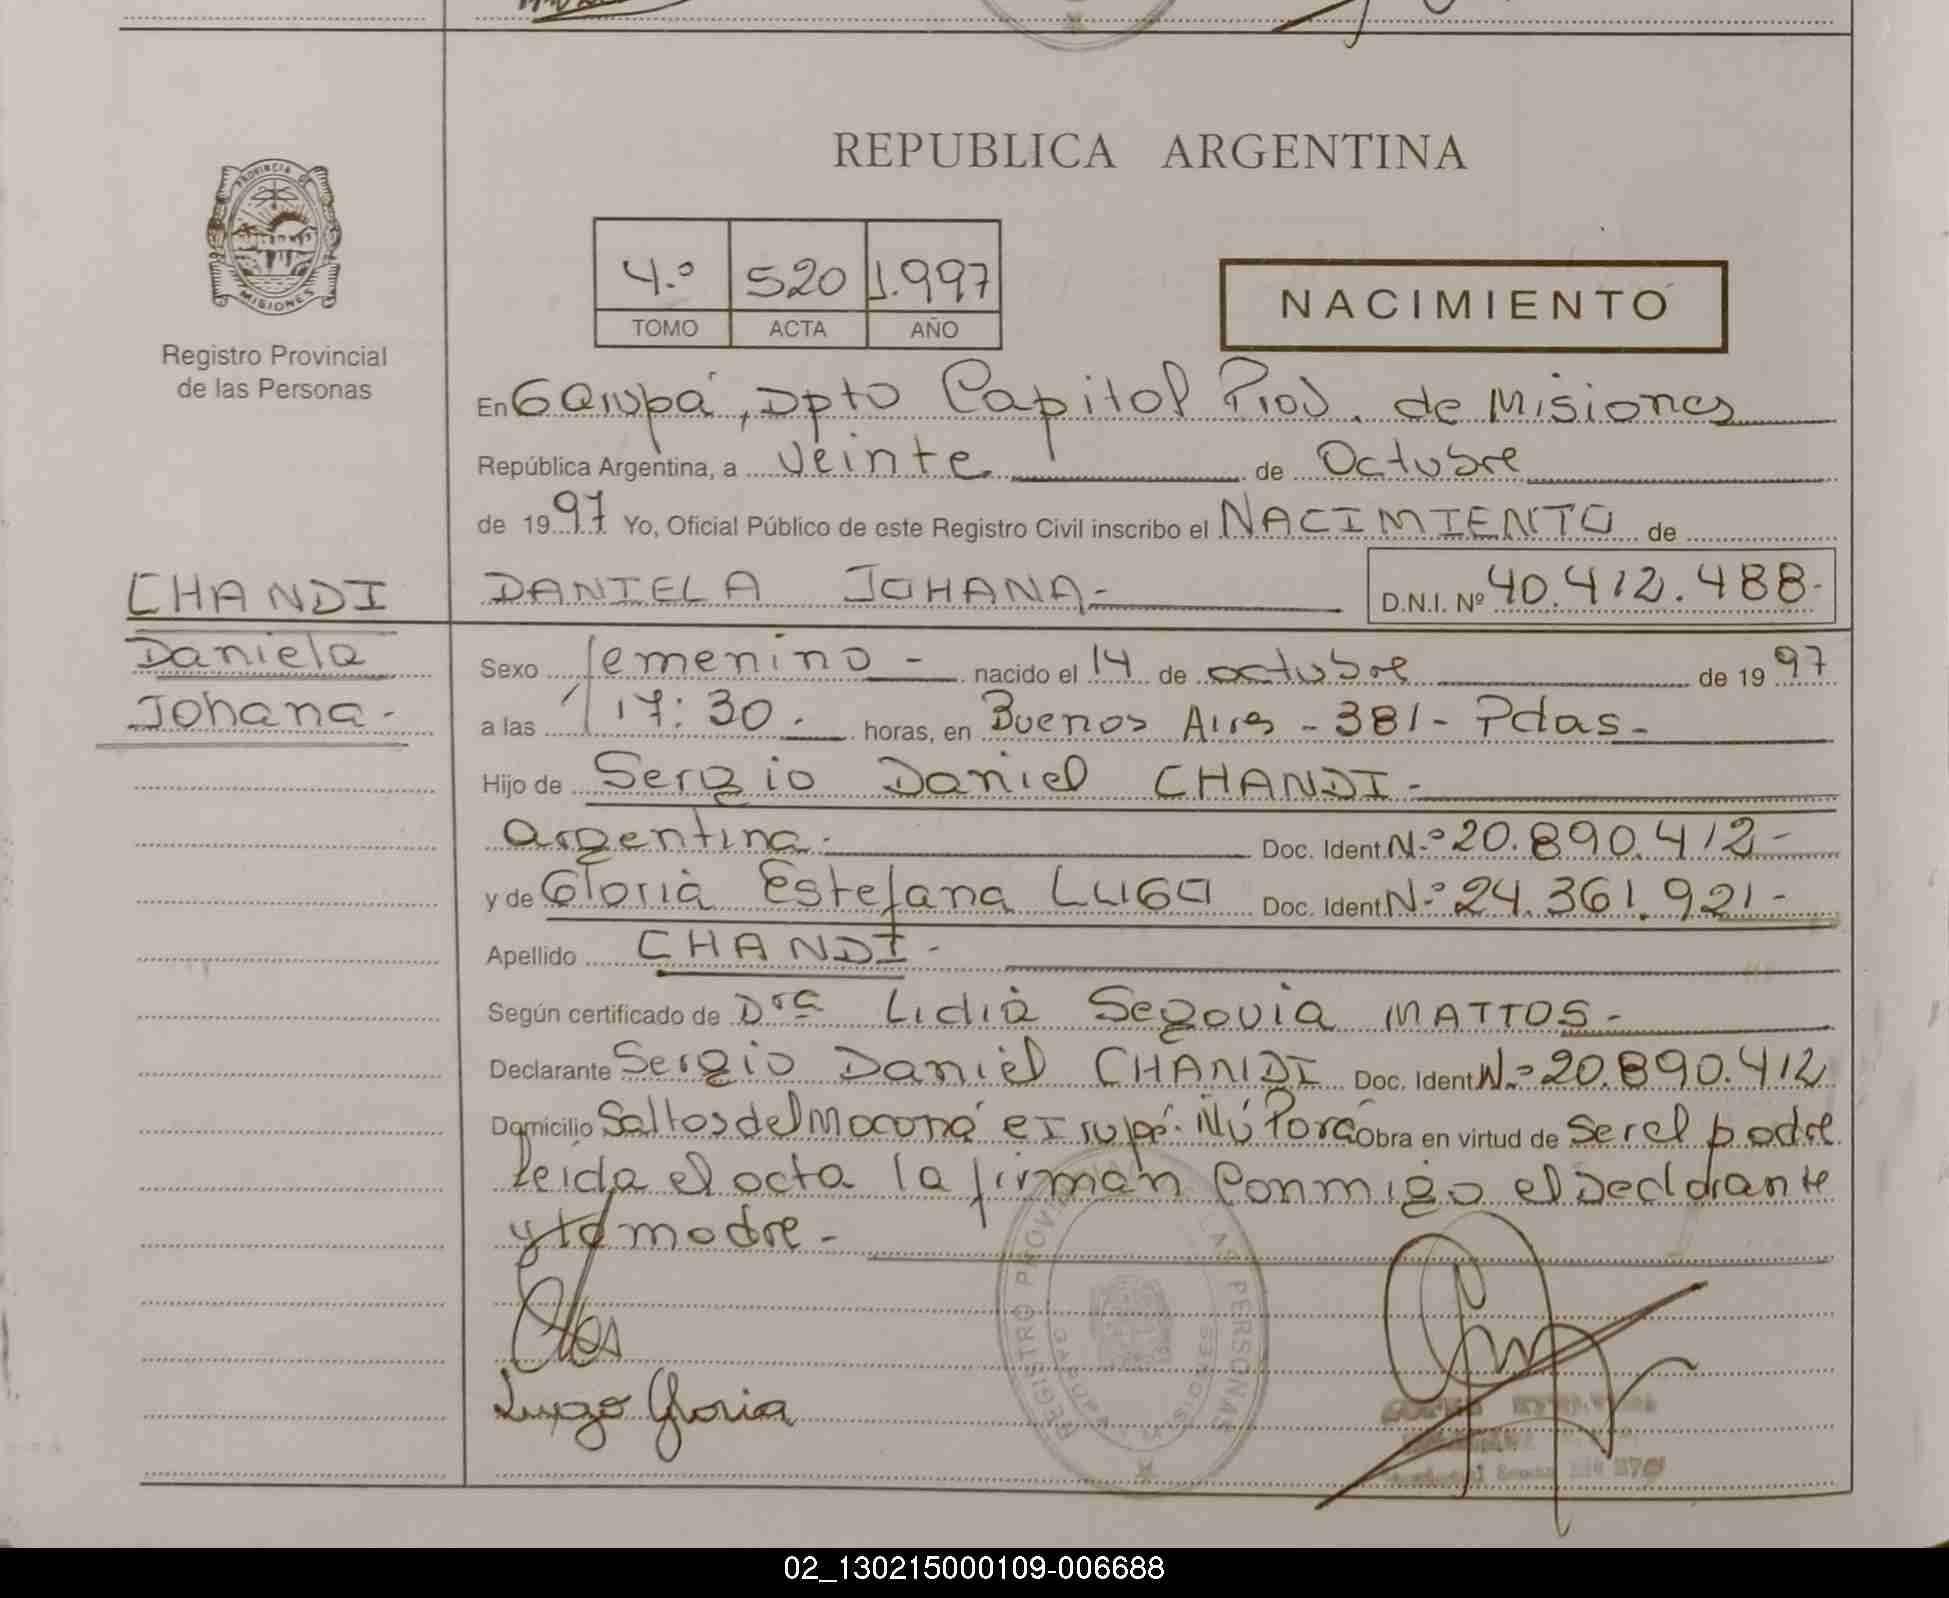 REPUBLICA ARGENTINA
PROVINCIA DE
MISIONES
Registro Provincial
de las Personas
4.º 520 1.997
TOMO ACTA AÑO
NACIMIENTO
En Garupá, Dpto Capital Prov. de Misiones
República Argentina, a veinte de Octubre
de 1997 Yo, Oficial Público de este Registro Civil inscribo el NACIMIENTO de
CHANDI
Daniela
Johana.-
DANIELA JOHANA- D.N.I. Nº 40.412.488-
Sexo femenino - nacido el 14 de octubre de 1997
a las 17:30. horas, en Buenos Aires - 381- Pdas-
Hijo de Sergio Daniel CHANDI-
argentina.- Doc. Ident. Nº 20.890.412-
y de Gloria Estefana LUGO Doc. Ident. Nº 24.361.921-
Apellido CHANDI-
Según certificado de Dra Lidia Segovia MATTOS-
Declarante Sergio Daniel CHANDI Doc. Ident. Nº 20.890.412
Domicilio Saltos del Moconá Ñú Porá Obra en virtud de ser el padre
leida el acta la firman conmigo el Declarante
y la madre-
Lugo Gloria
REGISTRO PROVINCIAL LAS PERSONAS
MISIONES
02_130215000109-006688